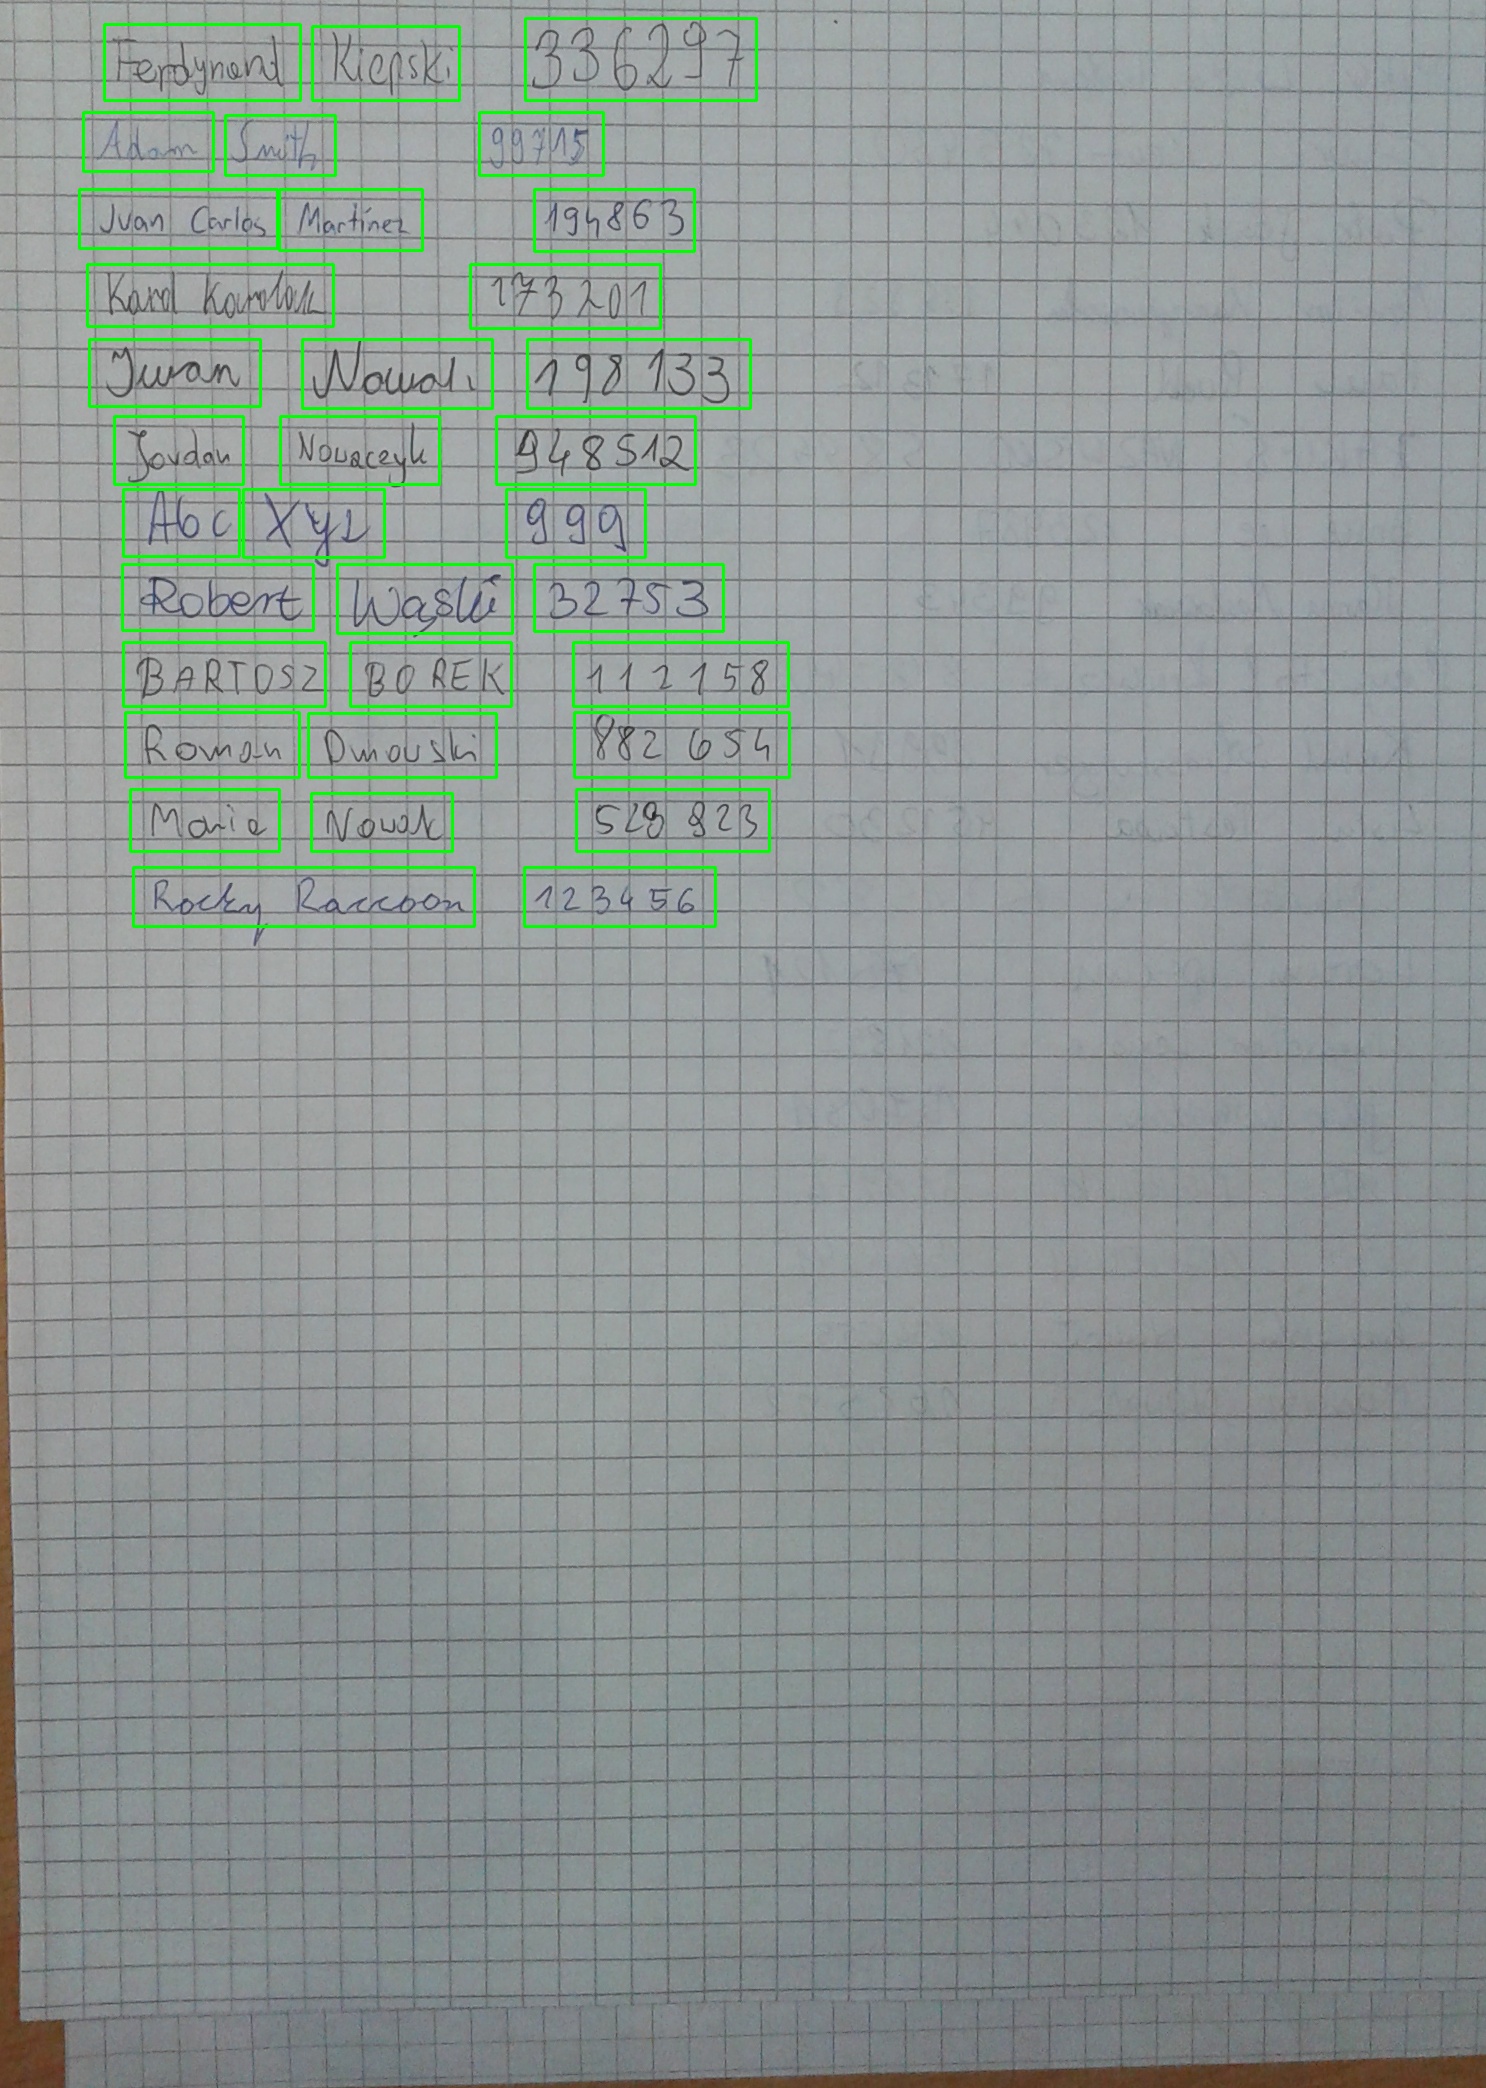 Ferdynand Kiepski 336297
Adam Smith 99715
Juan Carlos Martínez 194863
Karol Karolak 173201
Iwan Nowak 198 133
Jordan Nowaczyk 948512
Abc Xyz 999
Robert Wąski 32753
BARTOSZ BOREK 112158
Roman Dmowski 882 654
Maria Nowak 529 923
Rocky Raccoon 123456